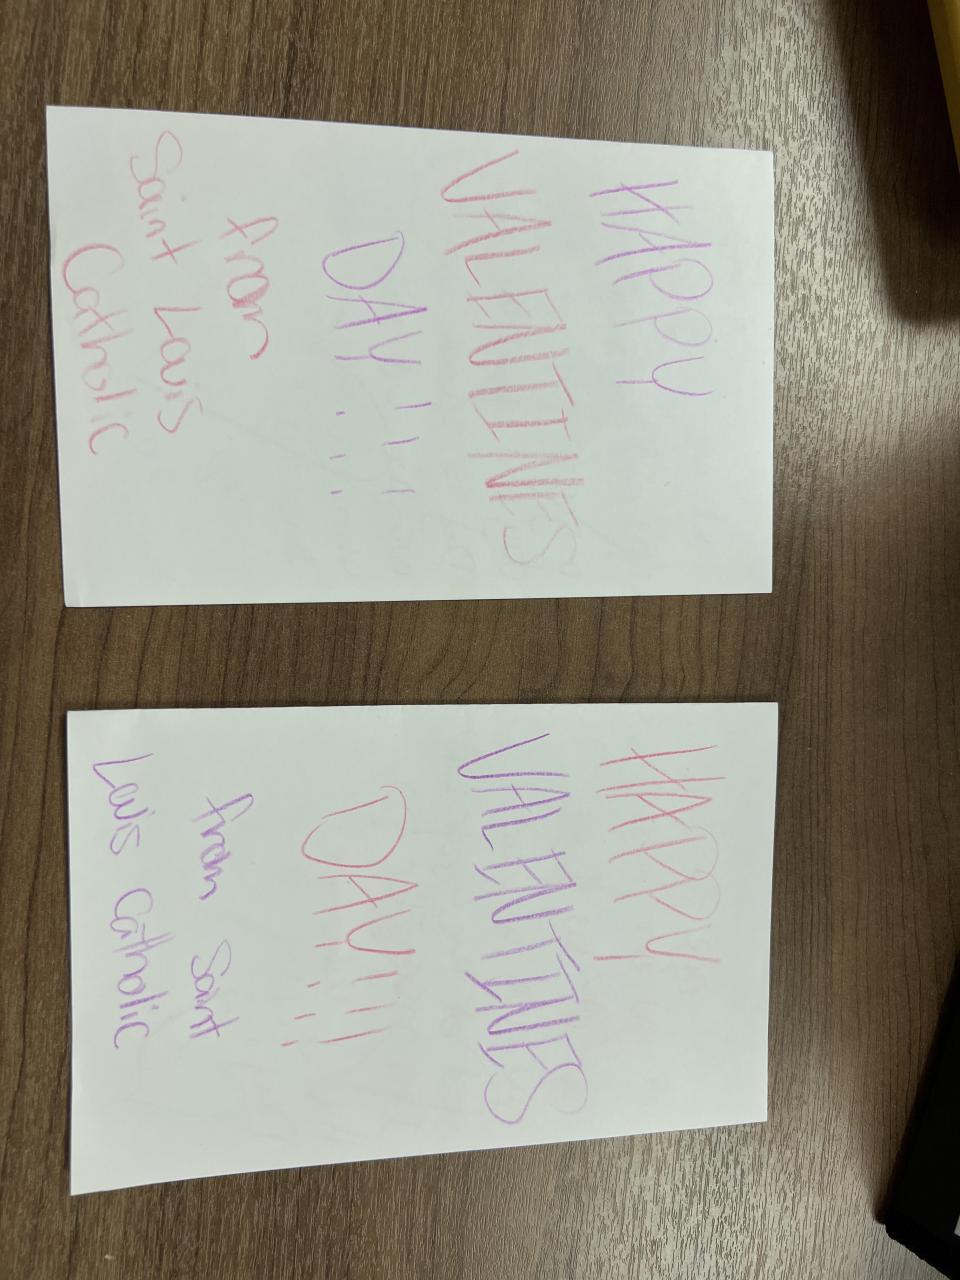 HAPPY
VALENTINES
DAY!!!
from
Saint Louis
Catholic
HAPPY
VALENTINES
DAY!!!
from Saint
Louis Catholic